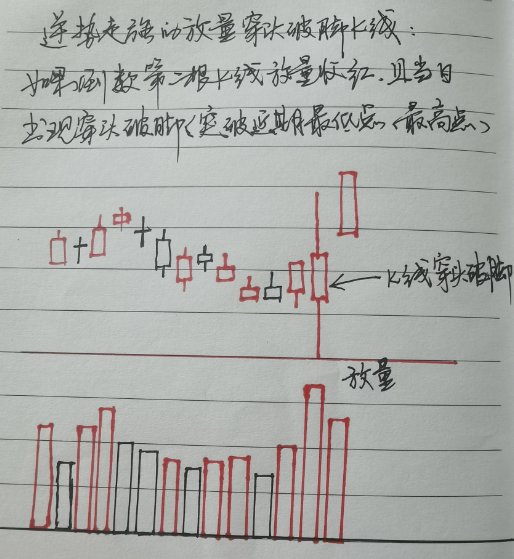 逆势走强的放量穿头破脚K线:
如果倒数第二根K线放量收红,且当日
出现穿头破脚(突破近期最低点、最高点)
K线穿头破脚
放量